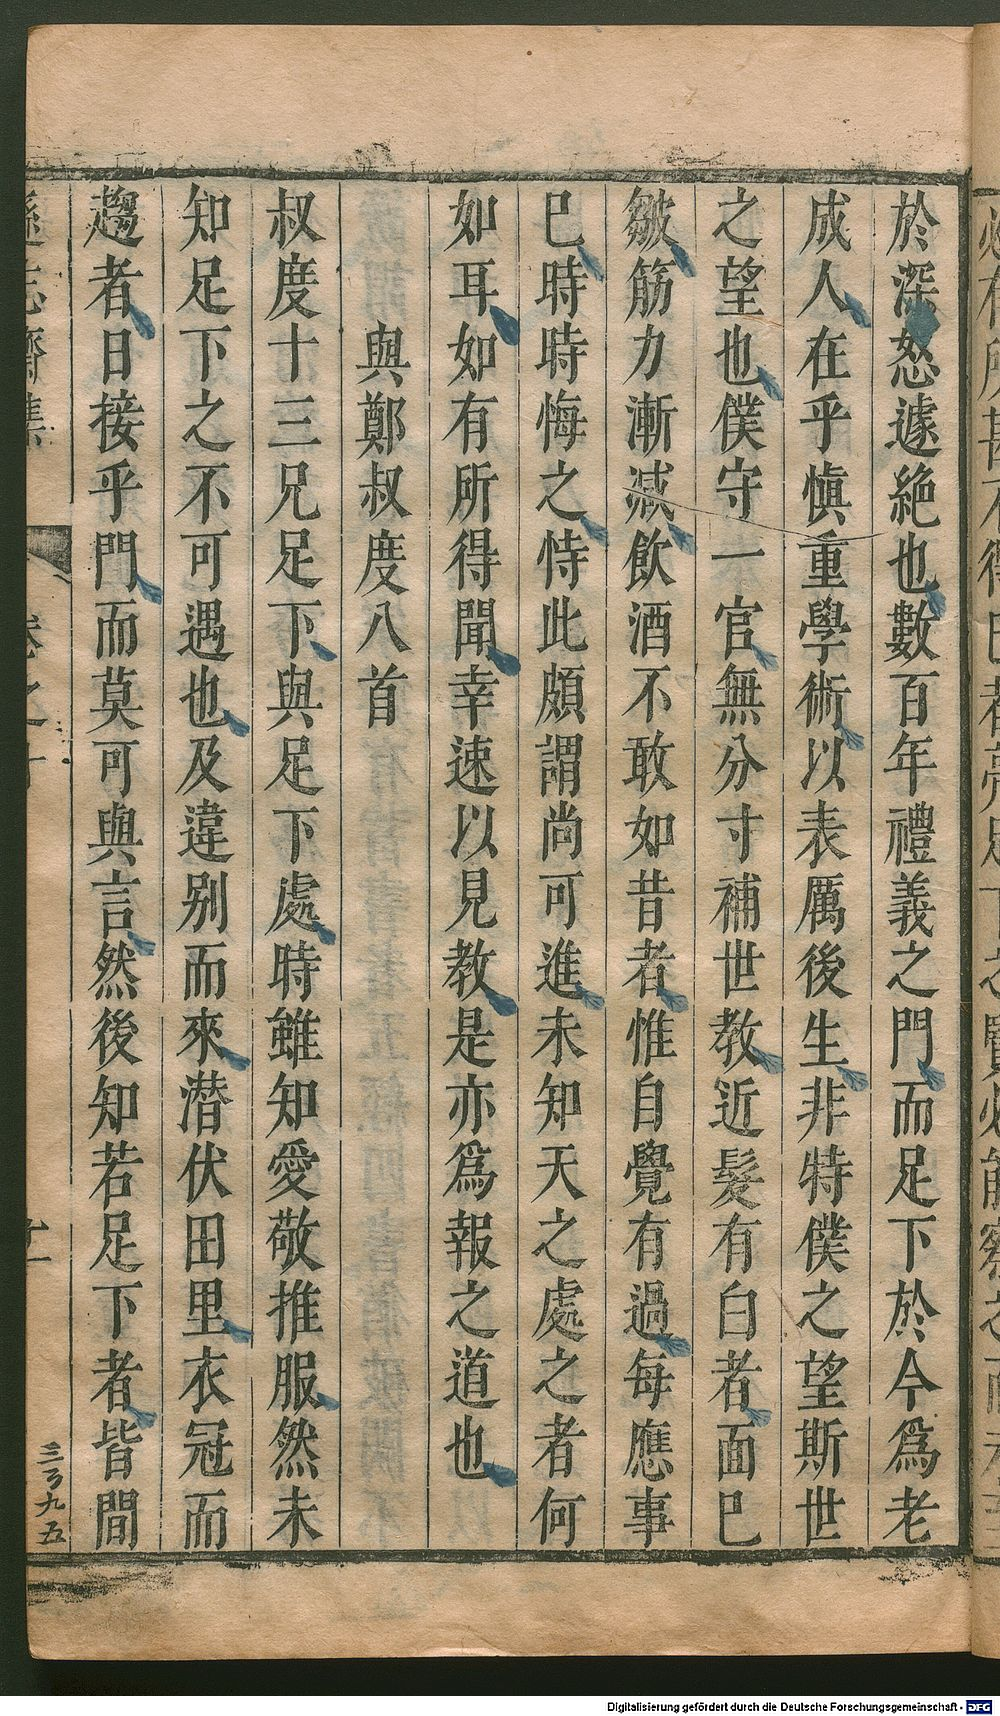 於深怒遽絶也數百年禮義之門而足下於今爲老
成人在乎愼重學術以表厲後生非特僕之望斯世
之望也僕守一官無分寸補世教近髮有白者面已
皺筋力漸減飲酒不敢如昔者惟自覺有過每應事
已時時悔之恃此頗謂尚可進未知天之處之者何
如耳如有所得聞幸速以見教是亦爲報之道也
與鄭叔度八首
叔度十三兄足下與足下處時雖知愛敬推服然未
知足下之不可遇也及違别而來潜伏田里衣冠而
趨者日接乎門而莫可與言然後知若足下者皆間
遜志齋集 卷之十
三百九五
Digitalisierung gefördert durch die Deutsche Forschungsgemeinschaft - DFG